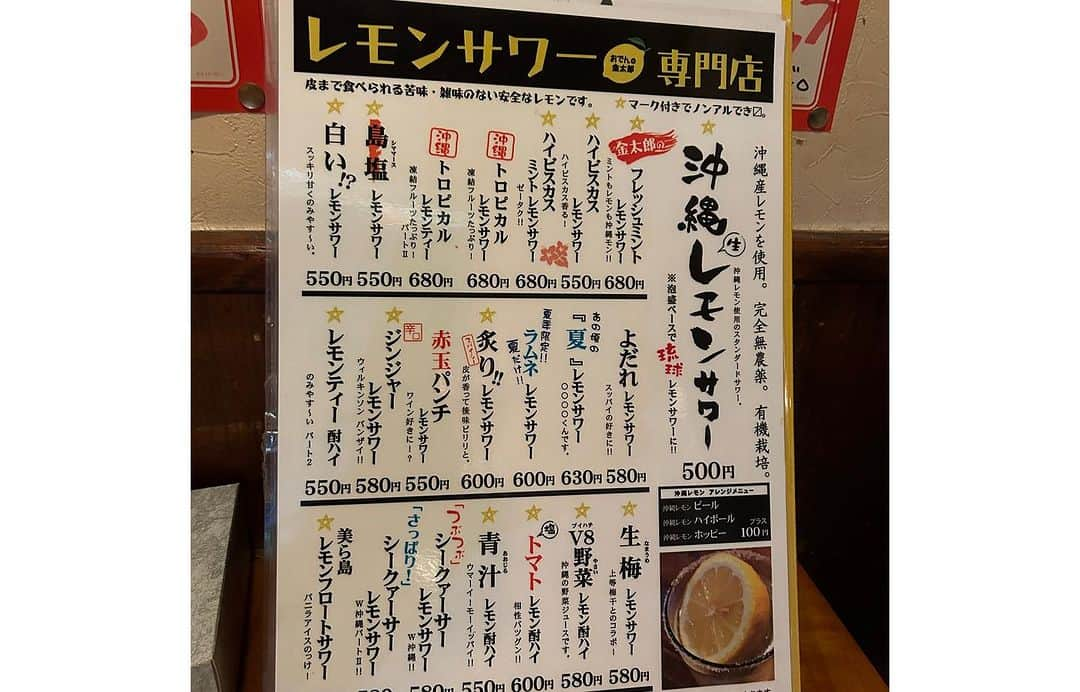 レモンサワー
おでんの
金太郎
専門店
皮まで食べられる苦味・雑味のない安全なレモンです。
マーク付きでノンアルでき〼。
沖縄産レモンを使用。完全無農薬。有機栽培。
沖縄
生
レモンサワー
沖縄レモン使用のスタンダードサワー。
※泡盛ベースで琉球レモンサワーに!!
500円
金太郎の
フレッシュミント
レモンサワー
ミントもレモンも沖縄モン!!
680円
ハイビスカス
レモンサワー
ハイビスカス香る!
550円
ハイビスカス
ミントレモンサワー
ゼータク!!
680円
沖縄
トロピカル
レモンサワー
凍結フルーツたっぷりー
680円
沖縄
トロピカル
レモンティー
凍結フルーツたっぷりー
パートⅡ
680円
シママース
島塩
レモンサワー
550円
白い!?
レモンサワー
スッキリ甘くのみやす〜い、
550円
よだれ
レモンサワー
スッパイの好きに!!
580円
あの頃の
『夏』
レモンサワー
〇〇〇〇くんです。
630円
夏季限定!!
ラムネ
レモンサワー
夏だけ!!
600円
炙り!!
レモンサワー
皮が香って後味ピリリと、
600円
赤玉パンチ
レモンサワー
ワイン好きにー?
550円
辛口
ジンジャー
レモンサワー
ウィルキンソン バンザイ!!
580円
レモンティー
酎ハイ
のみやす〜い パート2
550円
沖縄レモン アレンジメニュー
沖縄レモン ビール
沖縄レモン ハイボール
沖縄レモン ホッピー
プラス
100円
なまうめ
生梅
レモンサワー
上等梅干とのコラボー
580円
ブイハチ
やさい
V8野菜
レモン酎ハイ
沖縄の野菜ジュースです。
580円
塩
トマト
レモン酎ハイ
相性バツグン!!
600円
あおじる
青汁
レモン酎ハイ
ウマーイーモーイッパイ!!
550円
「つぶつぶ」
シークァーサー
レモンサワー
W沖縄!!
580円
「さっぱり!」
シークァーサー
レモンサワー
W沖縄パートⅡ!!
美ら島
レモンフロートサワー
バニラアイスのっけ